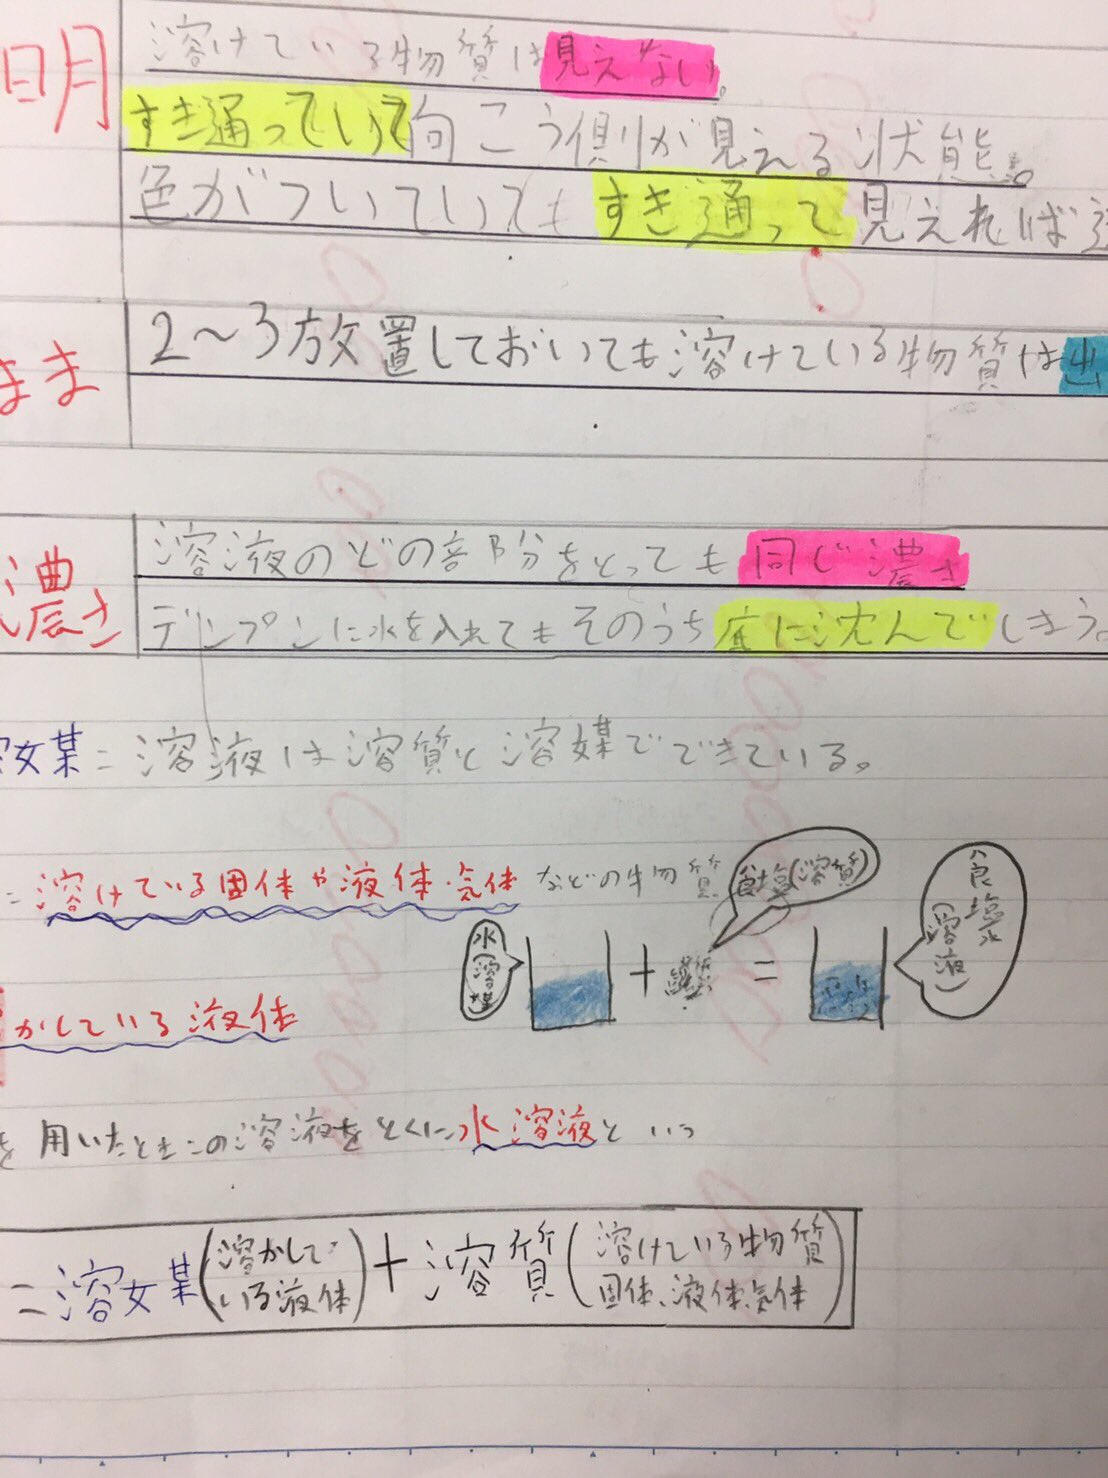 明
溶けている物質は見えない。
すき通っていて向こう側が見える状態。
色がついていてもすき通って見えれば
まま
2〜3放置しておいても溶けている物質は出
濃さ
溶液のどの部分をとっても同じ濃さ
デンプンに水を入れてもそのうち底に沈んでしまう。
溶媒=溶液は溶質と溶媒でできている。
=溶けている固体や液体・気体などの物質
食塩(溶質)
水(溶媒)
+
=
食塩水(溶液)
かしている液体
を用いたときこの溶液をとくに水溶液という
=溶媒(溶かしている液体)+溶質(溶けている物質 固体、液体、気体)